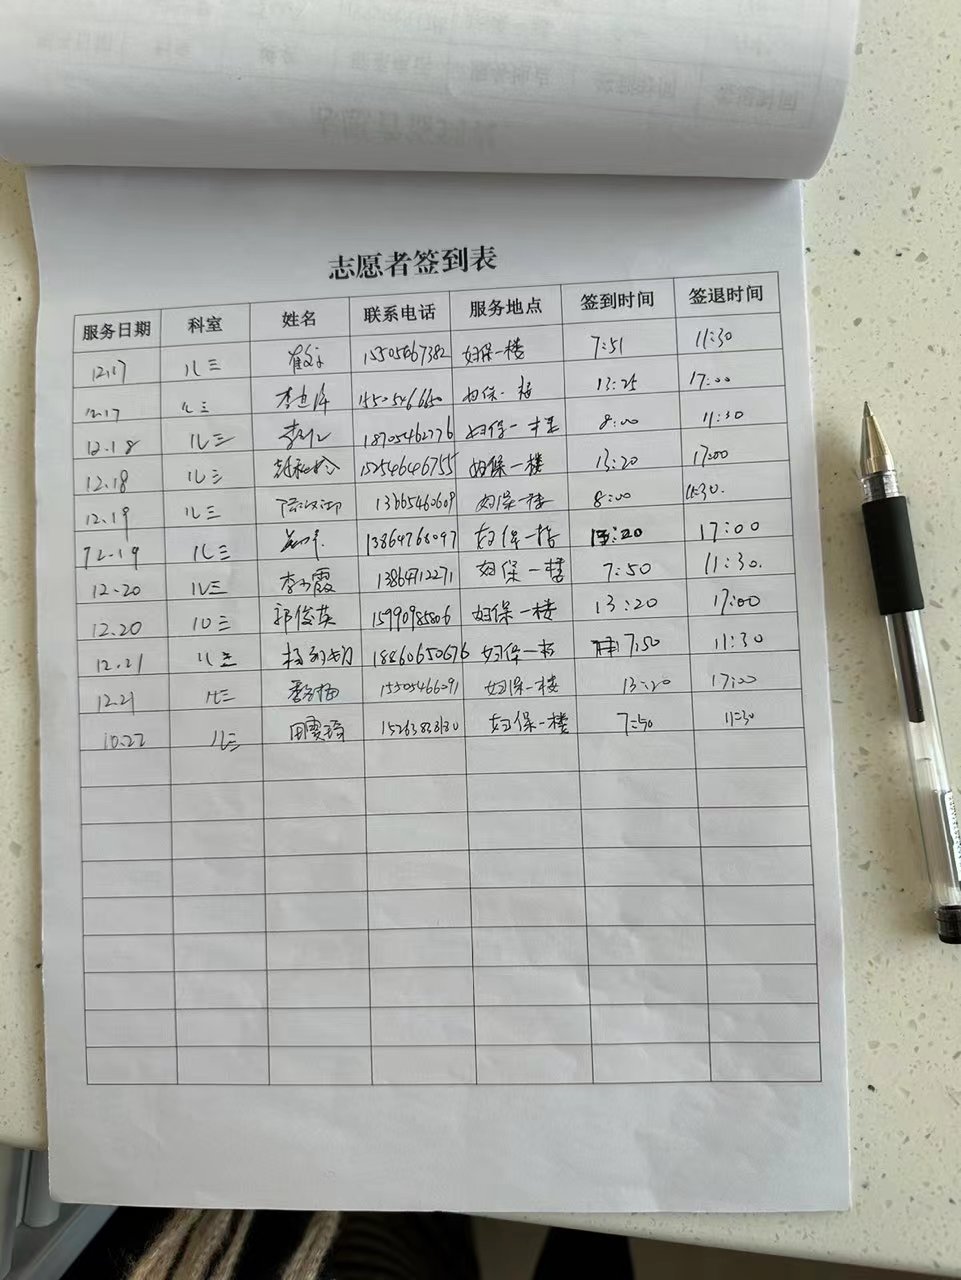 志愿者签到表
服务日期 科室 姓名 联系电话 服务地点 签到时间 签退时间
12.17 儿三 妇保一楼 7:51 11:30
12.17 儿三 妇保一楼 13:25 17:00
12.18 儿三 18705462776 妇保一楼 8:00 11:30
12.18 儿三 15254646755 妇保一楼 13:20 17:00
12.19 儿三 13665460609 妇保一楼 8:00 11:30.
12.19 儿三 13864768097 妇保一楼 13:20 17:00
12.20 儿三 李小霞 13864712271 妇保一楼 7:50 11:30.
12.20 儿三 郭俊英 15990985806 妇保一楼 13:20 17:00
12.21 儿三 18860650676 妇保一楼 7:50 11:30
12.21 儿三 15505466091 妇保一楼 13:20 17:00
10.22 儿三 田霞琦 15263838130 妇保一楼 7:50 11:30